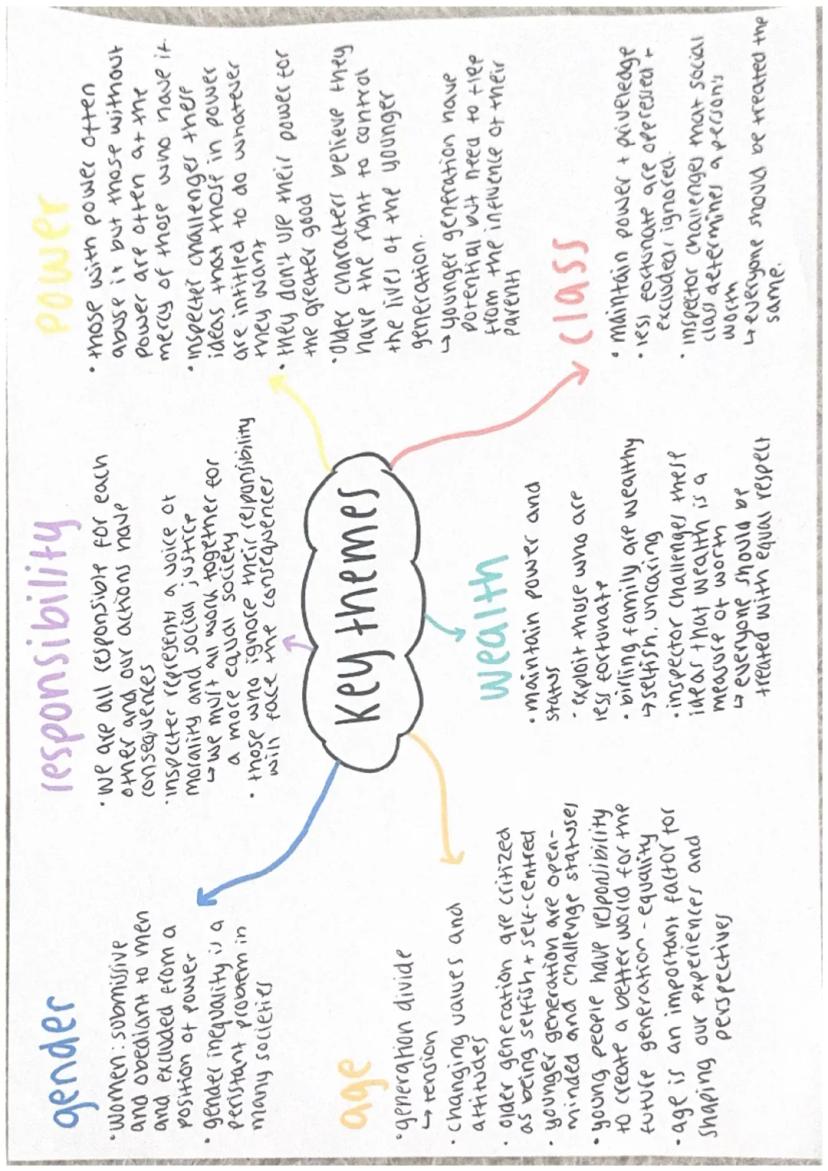 gender
• women: submissive
and obediant to men
and excluded from a
position of power
• gender inequality is a
persistant problem in
many societies
responsibility
• we are all responsible for each
other and our actions have
consequences
• inspecter represents a voice of
morality and social justice
↳ we must all work together for
a more equal society
• those who ignore their responsibility
will face the consequences
power
• those with power often
abuse it but those without
power are often at the
mercy of those who have it
• inspector challenges these
ideas that those in power
are intitled to do whatever
they want
• they don't use their power for
the greater good
• Older characters believe they
have the right to control
the lives of the younger
generation.
↳ younger generation have
potential but need to flee
from the influence of their
parents
Key themes
age
• generation divide
↳ tension
• changing values and
attitudes
• older generation are critized
as being selfish + self-centred
• younger generation are open-
minded and challenge statuses
• young people have responsibility
to create a better world for the
future generation - equality
• age is an important factor for
shaping our experiences and
perspectives
wealth
• maintain power and
status
• exploit those who are
less fortunate
• birling family are wealthy
↳ selfish, uncaring
• inspector challenges these
ideas that wealth is a
measure of worth
↳ everyone should be
treated with equal respect
class
• maintain power + priveledge
• less fortunate are opressed +
excluded, ignored.
• inspector challenges that social
class determines a person's
worth
↳ everyone should be treated the
same.